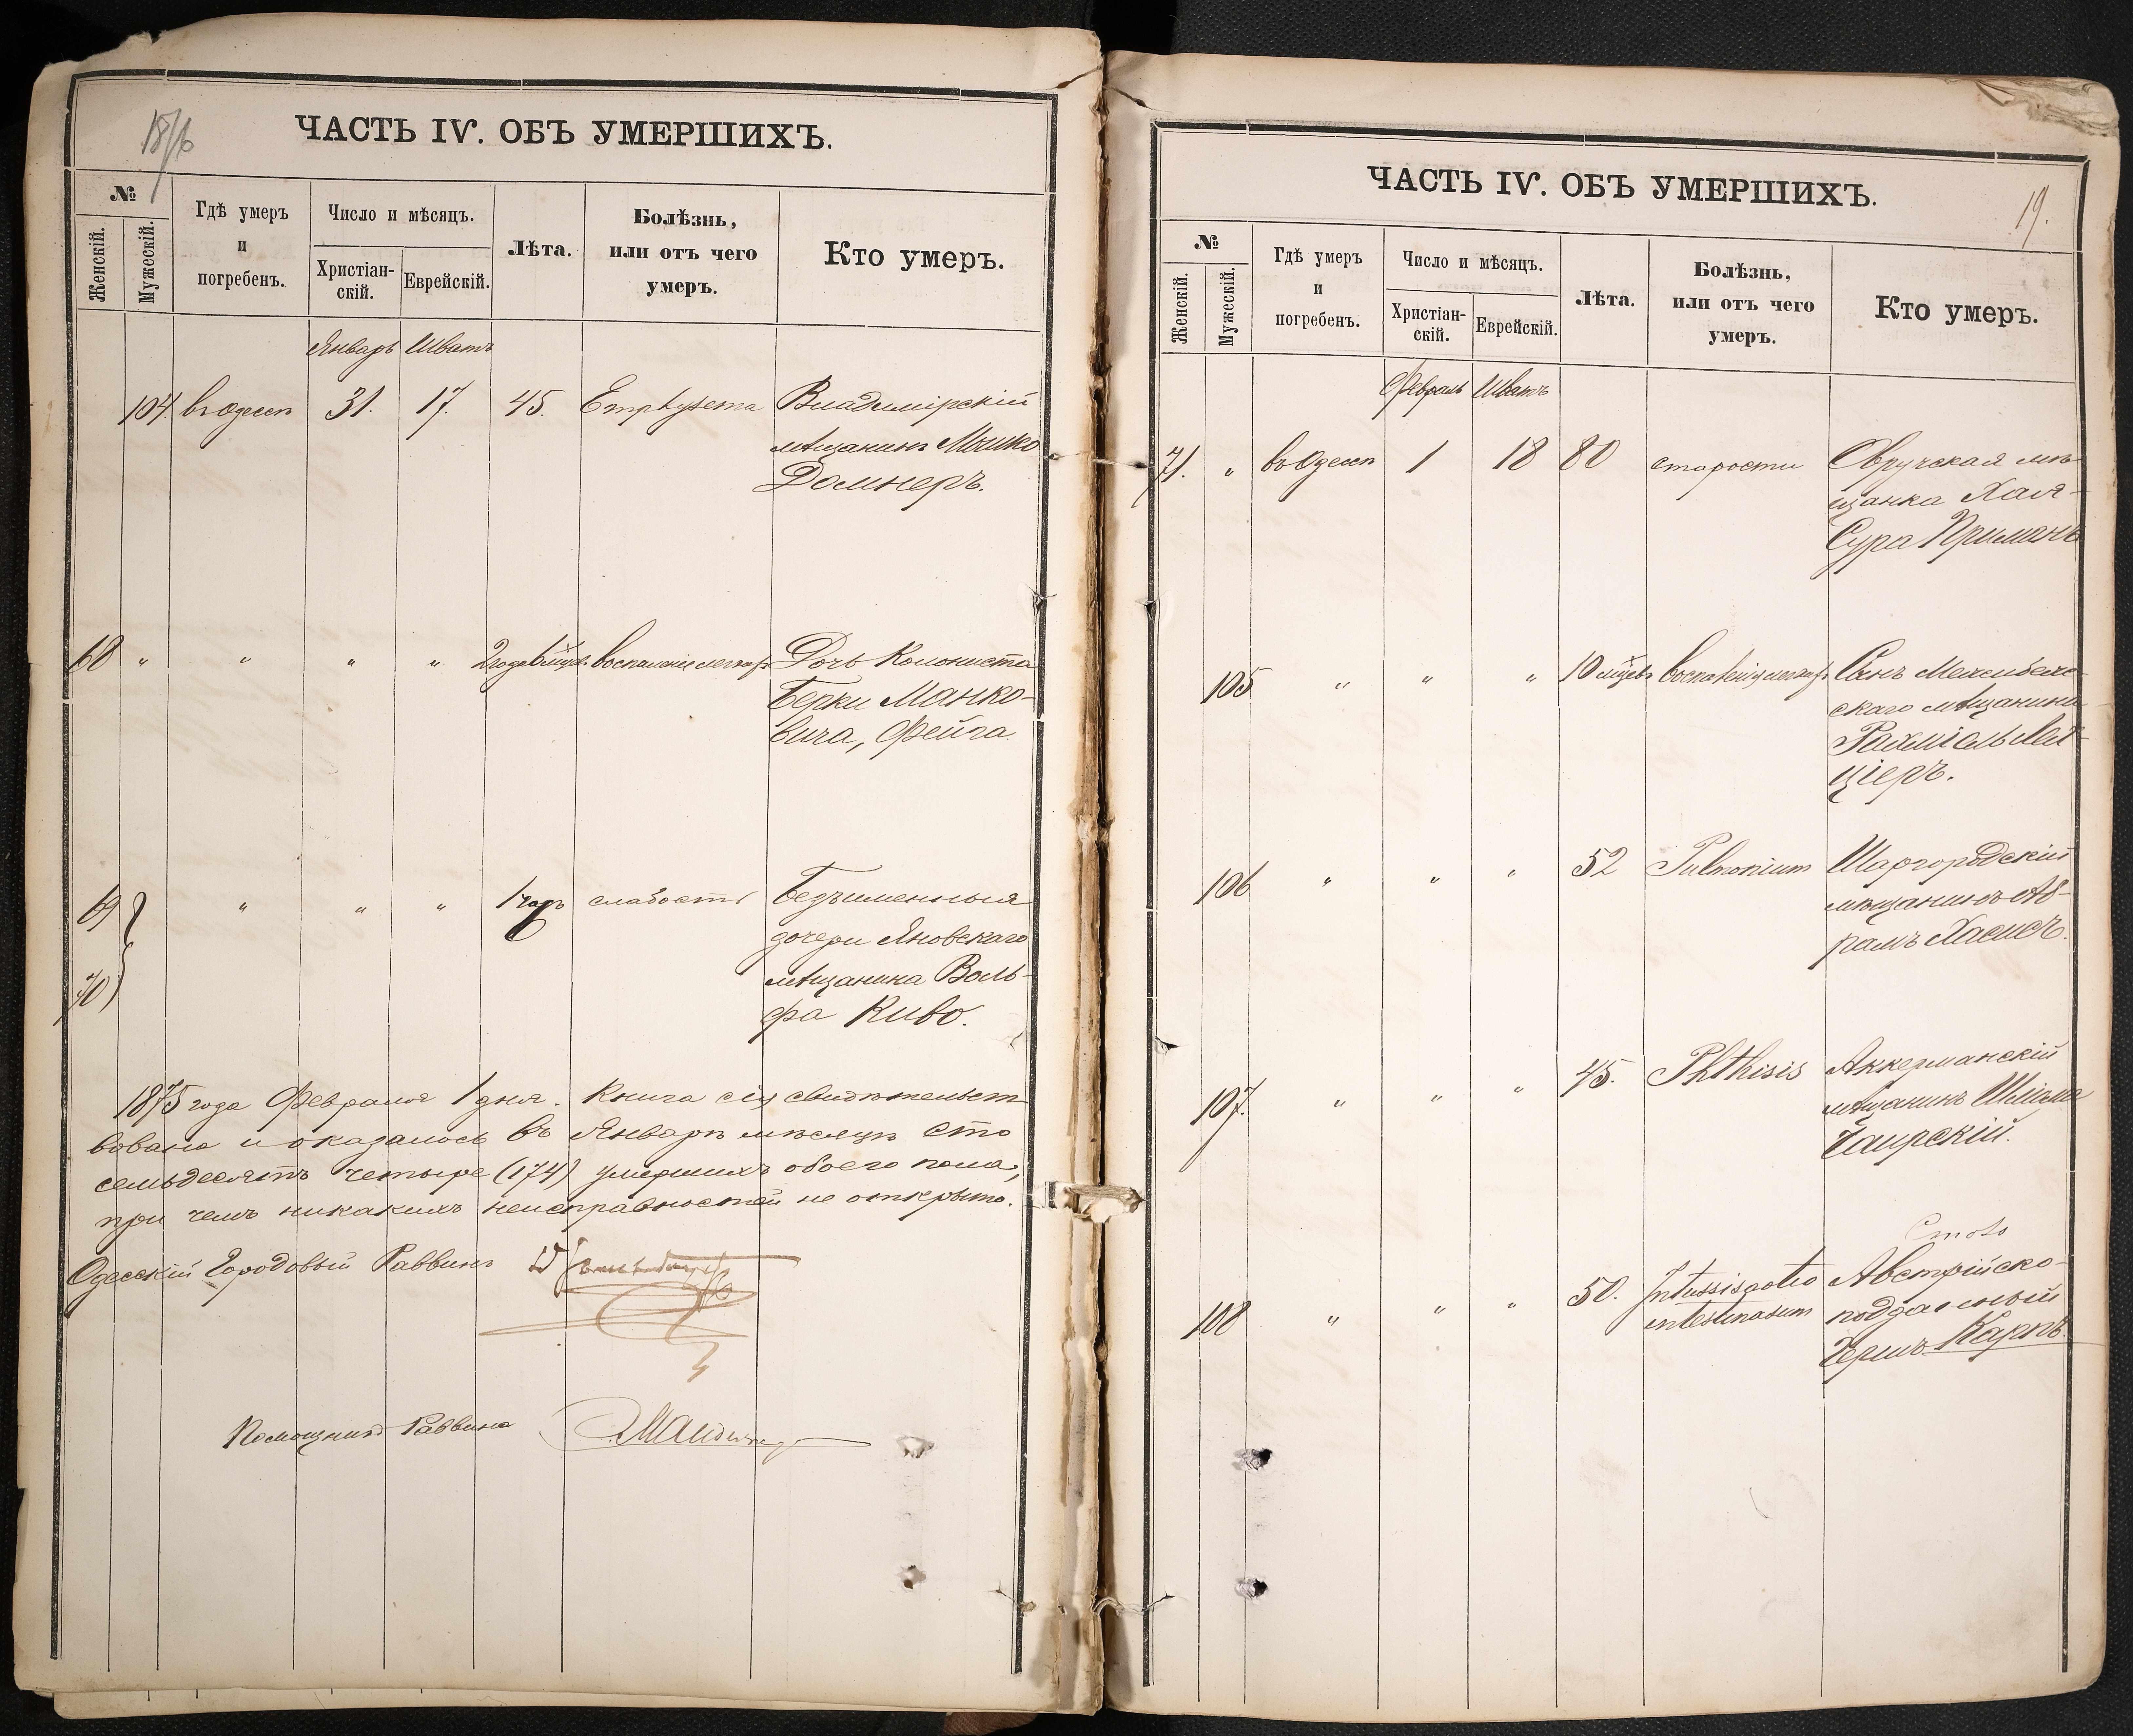 ЧАСТЬ IV. ОБЪ УМЕРШИХЪ.
№
Женскій.
Мужескій.
Гдѣ умеръ
и
погребенъ.
Число и мѣсяцъ.
Христіан-
скій.
Еврейскій.
Лѣта.
Болѣзнь,
или отъ чего
умеръ.
Кто умеръ.
Январь Шватъ
104. въ Одессѣ 31. 17. 45. Emphysema Владимірскій
мѣщанинъ Мошко
Домнеръ.
68 " " " " 2 года воспаленіе легкихъ Дочь Колониста
Берки Манко-
вича, Фейга
69 " " " слабость Безъименныя
70 дочери Яновскаго
мѣщанина Воль-
фа Киво.
1875 года Февраля 1 дня. Книга сія свидѣтельст-
вована и оказалось въ Январѣ мѣсяцѣ сто
семьдесятъ четыре (174) умершихъ обоего пола,
при чемъ никакихъ неисправностей не открыто.
Одесскій Городовый Раввинъ
Помощникъ Раввина
ЧАСТЬ IV. ОБЪ УМЕРШИХЪ.
19.
№
Женскій.
Мужескій.
Гдѣ умеръ
и
погребенъ.
Число и мѣсяцъ.
Христіан-
скій.
Еврейскій.
Лѣта.
Болѣзнь,
или отъ чего
умеръ.
Кто умеръ.
Февраль Шватъ
71. " въ Одессѣ 1 18 80 старости Овручская мѣ-
щанка Хая-
Сура Приманъ
105 " " " 10 мѣсцевъ воспаленія легкихъ Сынъ Межибож-
скаго мѣщанина
Рахміель Лей-
ціеръ.
106 " " " 52 Pulmonium Шаргородскій
мѣщанинъ Аб-
рамъ Хасисъ.
107. " " " 45. Phthisis Аккерманскій
мѣщанинъ Шліома
Гаирскій.
108 " " " 50. Intussisaotio Австрійско-
intestinasum подданный
Гершъ Карпъ